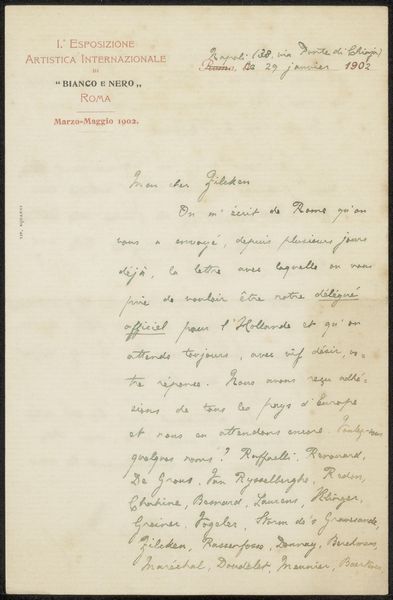 I.ª Esposizione
Artistica Internazionale
di
"Bianco e Nero„
Roma
Marzo-Maggio 1902.
Napoli (28, via Ponte di Chiaja)
Roma, 29 janvier 1902
Mon cher Zilcken
On m'écrit de Rome qu'on
vous a envoyé, depuis plusieurs jours
déjà, la lettre avec laquelle on vous
prie de vouloir être notre délégué
officiel pour l'Hollande et qu'on
attends toujours, avec vif désir, vo-
tre réponse. Nous avons reçu adhé-
sions de tous les pays d'Europe
et nous en attendons encore. Voulez-vous
quelques noms? Raffaelli, Renouard,
De Groux, Van Rysselberghe, Redon,
Chahine, Besnard, Laurens, Klinger,
Greiner, Vogeler, Storm de's Gravesande,
Zilcken, Rassenfosse, Donnay, Berchmans,
Maréchal, Doudelet, Meunier, Baertsoen